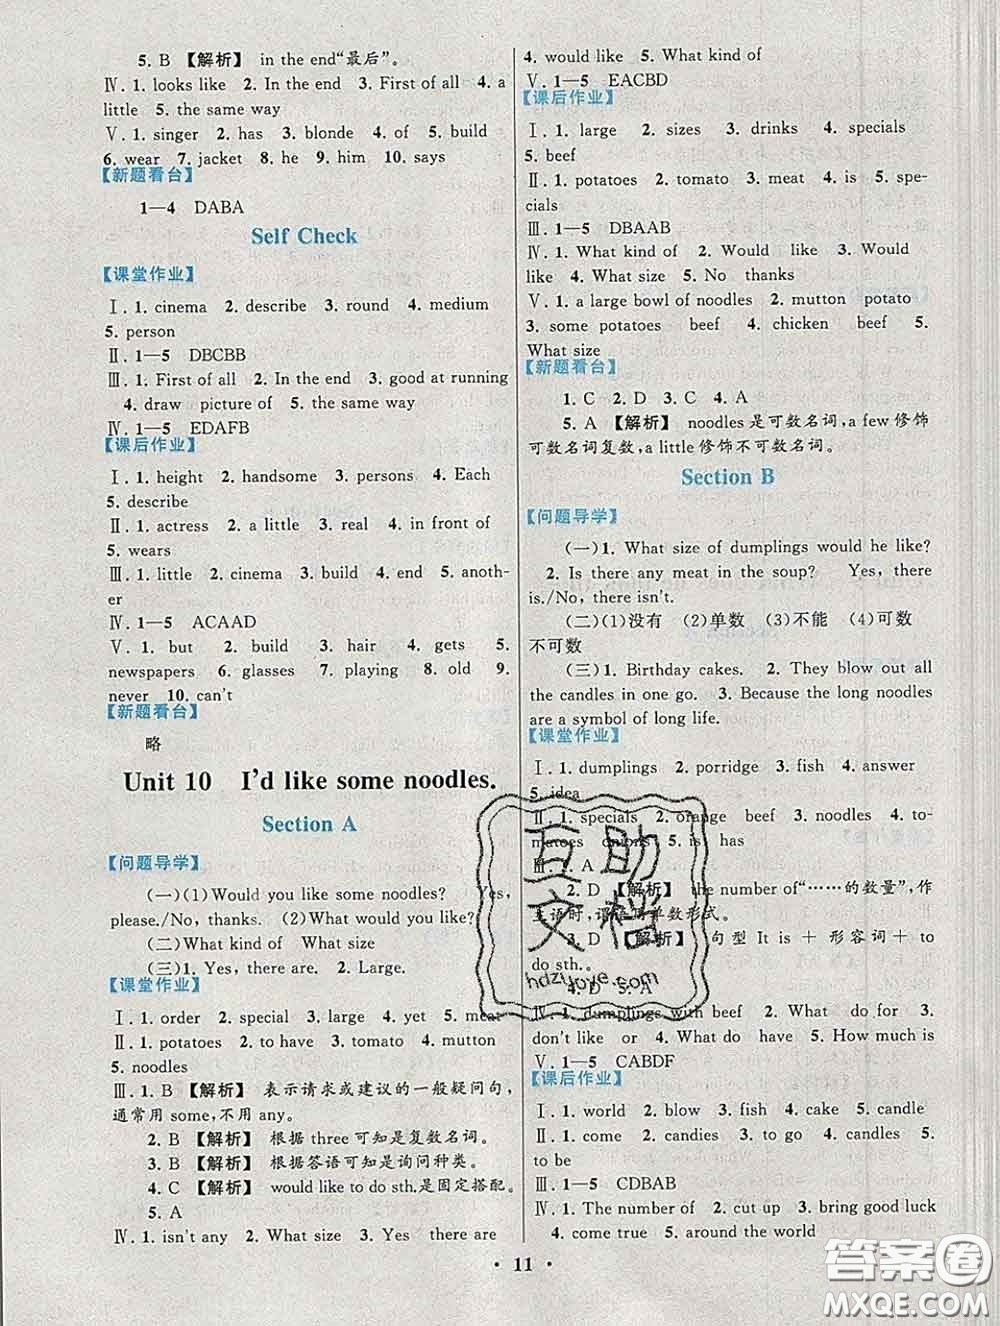 5. B 【解析】 in the end“最后”。
Ⅳ. 1. looks like 2. In the end 3. First of all 4. a
little 5. the same way
Ⅴ. 1. singer 2. has 3. blonde 4. of 5. build
6. wear 7. jacket 8. he 9. him 10. says
【新题看台】
1—4 DABA
Self Check
【课堂作业】
Ⅰ. 1. cinema 2. describe 3. round 4. medium
5. person
Ⅱ. 1—5 DBCBB
Ⅲ. 1. First of all 2. In the end 3. good at running
4. draw picture of 5. the same way
Ⅳ. 1—5 EDAFB
【课后作业】
Ⅰ. 1. height 2. handsome 3. persons 4. Each
5. describe
Ⅱ. 1. actress 2. a little 3. real 4. in front of
5. wears
Ⅲ. 1. little 2. cinema 3. build 4. end 5. anoth-
er
Ⅳ. 1—5 ACAAD
Ⅴ. 1. but 2. build 3. hair 4. gets 5.
newspapers 6. glasses 7. playing 8. old 9.
never 10. can't
【新题看台】
略
Unit 10 I'd like some noodles.
Section A
【问题导学】
(一)(1)Would you like some noodles? Yes,
please./No, thanks. (2)What would you like?
(二)What kind of What size
(三)1. Yes, there are. 2. Large.
【课堂作业】
Ⅰ. 1. order 2. special 3. large 4. yet 5. meat
Ⅱ. 1. potatoes 2. to have 3. tomato 4. mutton
5. noodles
Ⅲ. 1. B 【解析】 表示请求或建议的一般疑问句,
通常用 some,不用 any。
2. B 【解析】 根据 three 可知是复数名词。
3. B 【解析】 根据答语可知是询问种类。
4. C 【解析】 would like to do sth.是固定搭配。
5. A
Ⅳ. 1. isn't any 2. What size 3. Yes there are
4. would like 5. What kind of
Ⅴ. 1—5 EACBD
【课后作业】
Ⅰ. 1. large 2. sizes 3. drinks 4. specials
5. beef
Ⅱ. 1. potatoes 2. tomato 3. meat 4. is 5. spe-
cials
Ⅲ. 1—5 DBAAB
Ⅳ. 1. What kind of 2. Would like 3. Would
like 4. What size 5. No thanks
Ⅴ. 1. a large bowl of noodles 2. mutton potato
3. some potatoes beef 4. chicken beef 5.
What size
【新题看台】
1. C 2. D 3. C 4. A
5. A 【解析】 noodles 是可数名词,a few 修饰
可数名词复数,a little 修饰不可数名词。
Section B
【问题导学】
(一)1. What size of dumplings would he like?
2. Is there any meat in the soup? Yes, there
is./No, there isn't.
(二)(1)没有 (2)单数 (3)不能 (4)可数
不可数
(三)1. Birthday cakes. 2. They blow out all
the candles in one go. 3. Because the long noodles
are a symbol of long life.
【课堂作业】
Ⅰ. 1. dumplings 2. porridge 3. fish 4. answer
5. idea
Ⅱ. 1. specials 2. orange beef 3. drinks 4. to-
matoes onions 5. is has
Ⅲ. 1. A
2. D 【解析】 the number of“……的数量”,作
主语时,谓语用单数形式。
3. D 【解析】 句型 It is + 形容词+ to
do sth.。
4. D 5. A
Ⅳ. 1. dumplings with beef 2. What do for 3.
don't like 4. What about 5. How much is
Ⅴ. 1—5 CABDF
【课后作业】
Ⅰ. 1. world 2. blow 3. fish 4. cake 5. candle
Ⅱ. 1. come 2. candies 3. to go 4. candles 5.
to be
Ⅲ. 1—5 CDBAB
Ⅳ. 1. The number of 2. cut up 3. bring good luck
4. come true 5. around the world
• 11 •
互助
文档
hdzuoye.com
答案圈
MXQE.COM